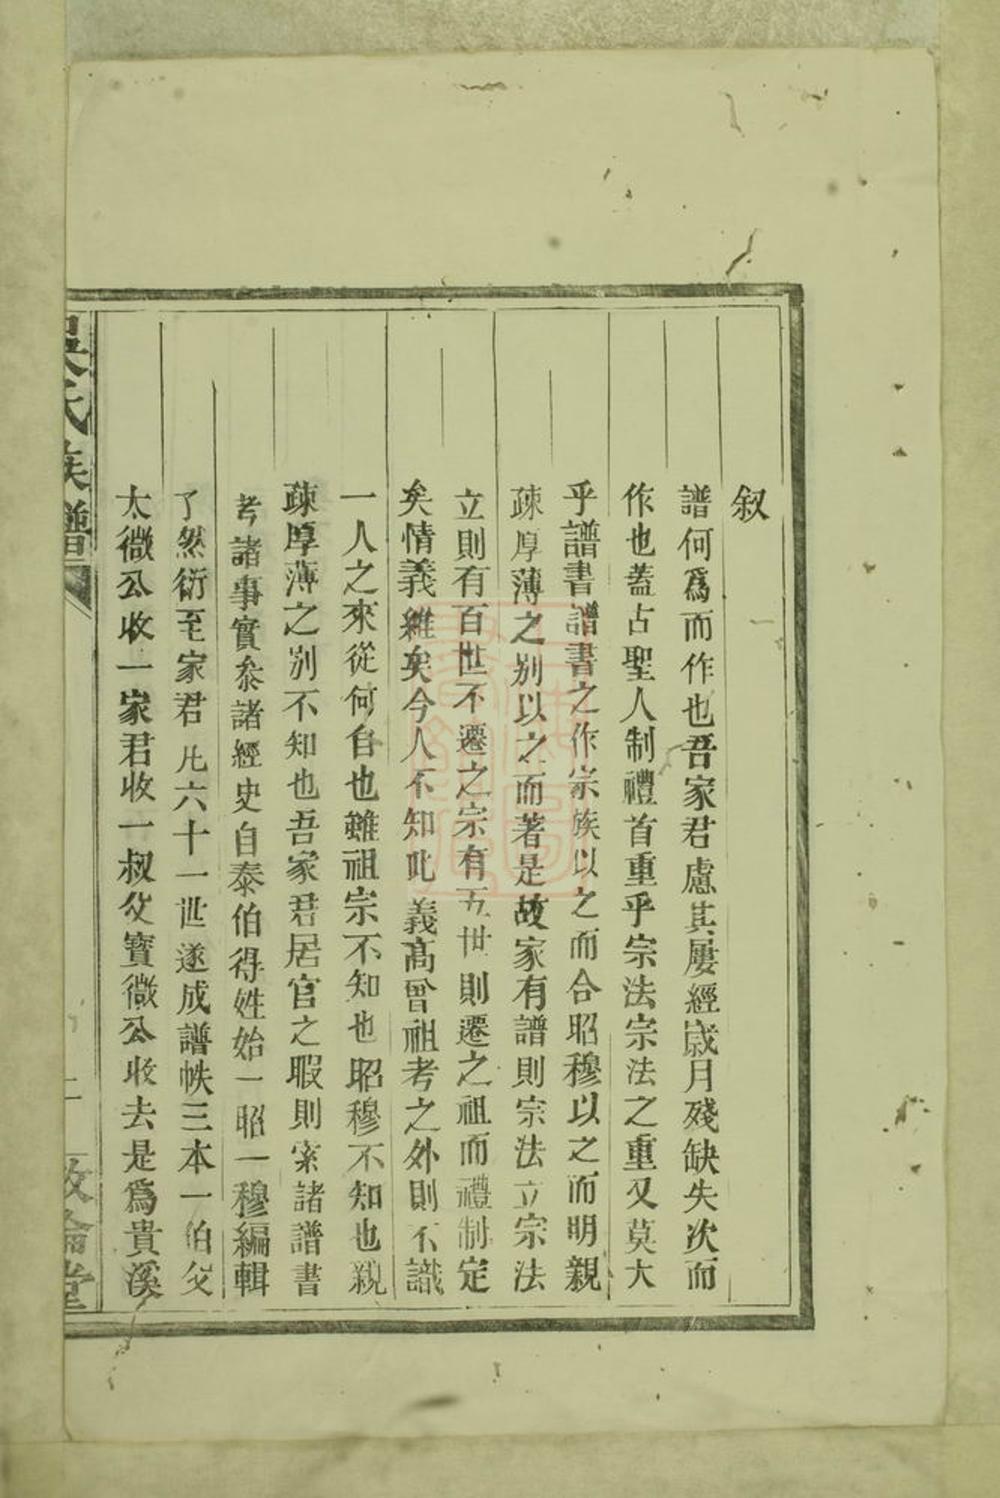 叙
譜何爲而作也吾家君慮其屢經歲月殘缺失次而
作也蓋占聖人制禮首重乎宗法宗法之重又莫大
乎譜書譜書之作宗族以之而合昭穆以之而明親
疎厚薄之别以之而著是故家有譜則宗法立宗法
立則有百世不遷之宗有五世則遷之祖而禮制定
矣情義維矣今人不知此義高曾祖考之外則不識
一人之來從何自也雖祖宗不知也昭穆不知也親
疎厚薄之别不知也吾家君居官之暇則案諸譜書
考諸事實叅諸經史自泰伯得姓始一昭一穆編輯
了然衍至家君凡六十一世遂成譜帙三本一伯父
太微公收一家君收一叔父寳微公收去是爲貴溪
吳氏族譜
上
敦倫堂